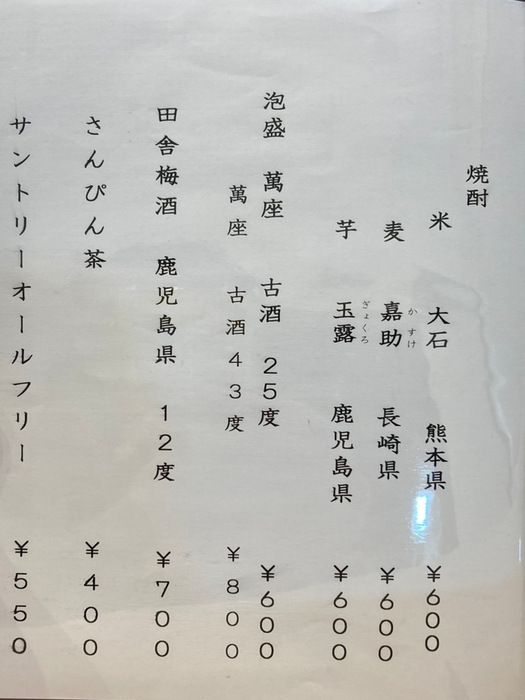 焼酎
米 大石 熊本県 ¥600
麦 嘉助 長崎県 ¥600
かすけ
芋 玉露 鹿児島県 ¥600
ぎょくろ
泡盛 萬座 古酒 25度 ¥600
萬座 古酒43度 ¥800
田舎梅酒 鹿児島県 12度 ¥700
さんぴん茶 ¥400
サントリーオールフリー ¥550